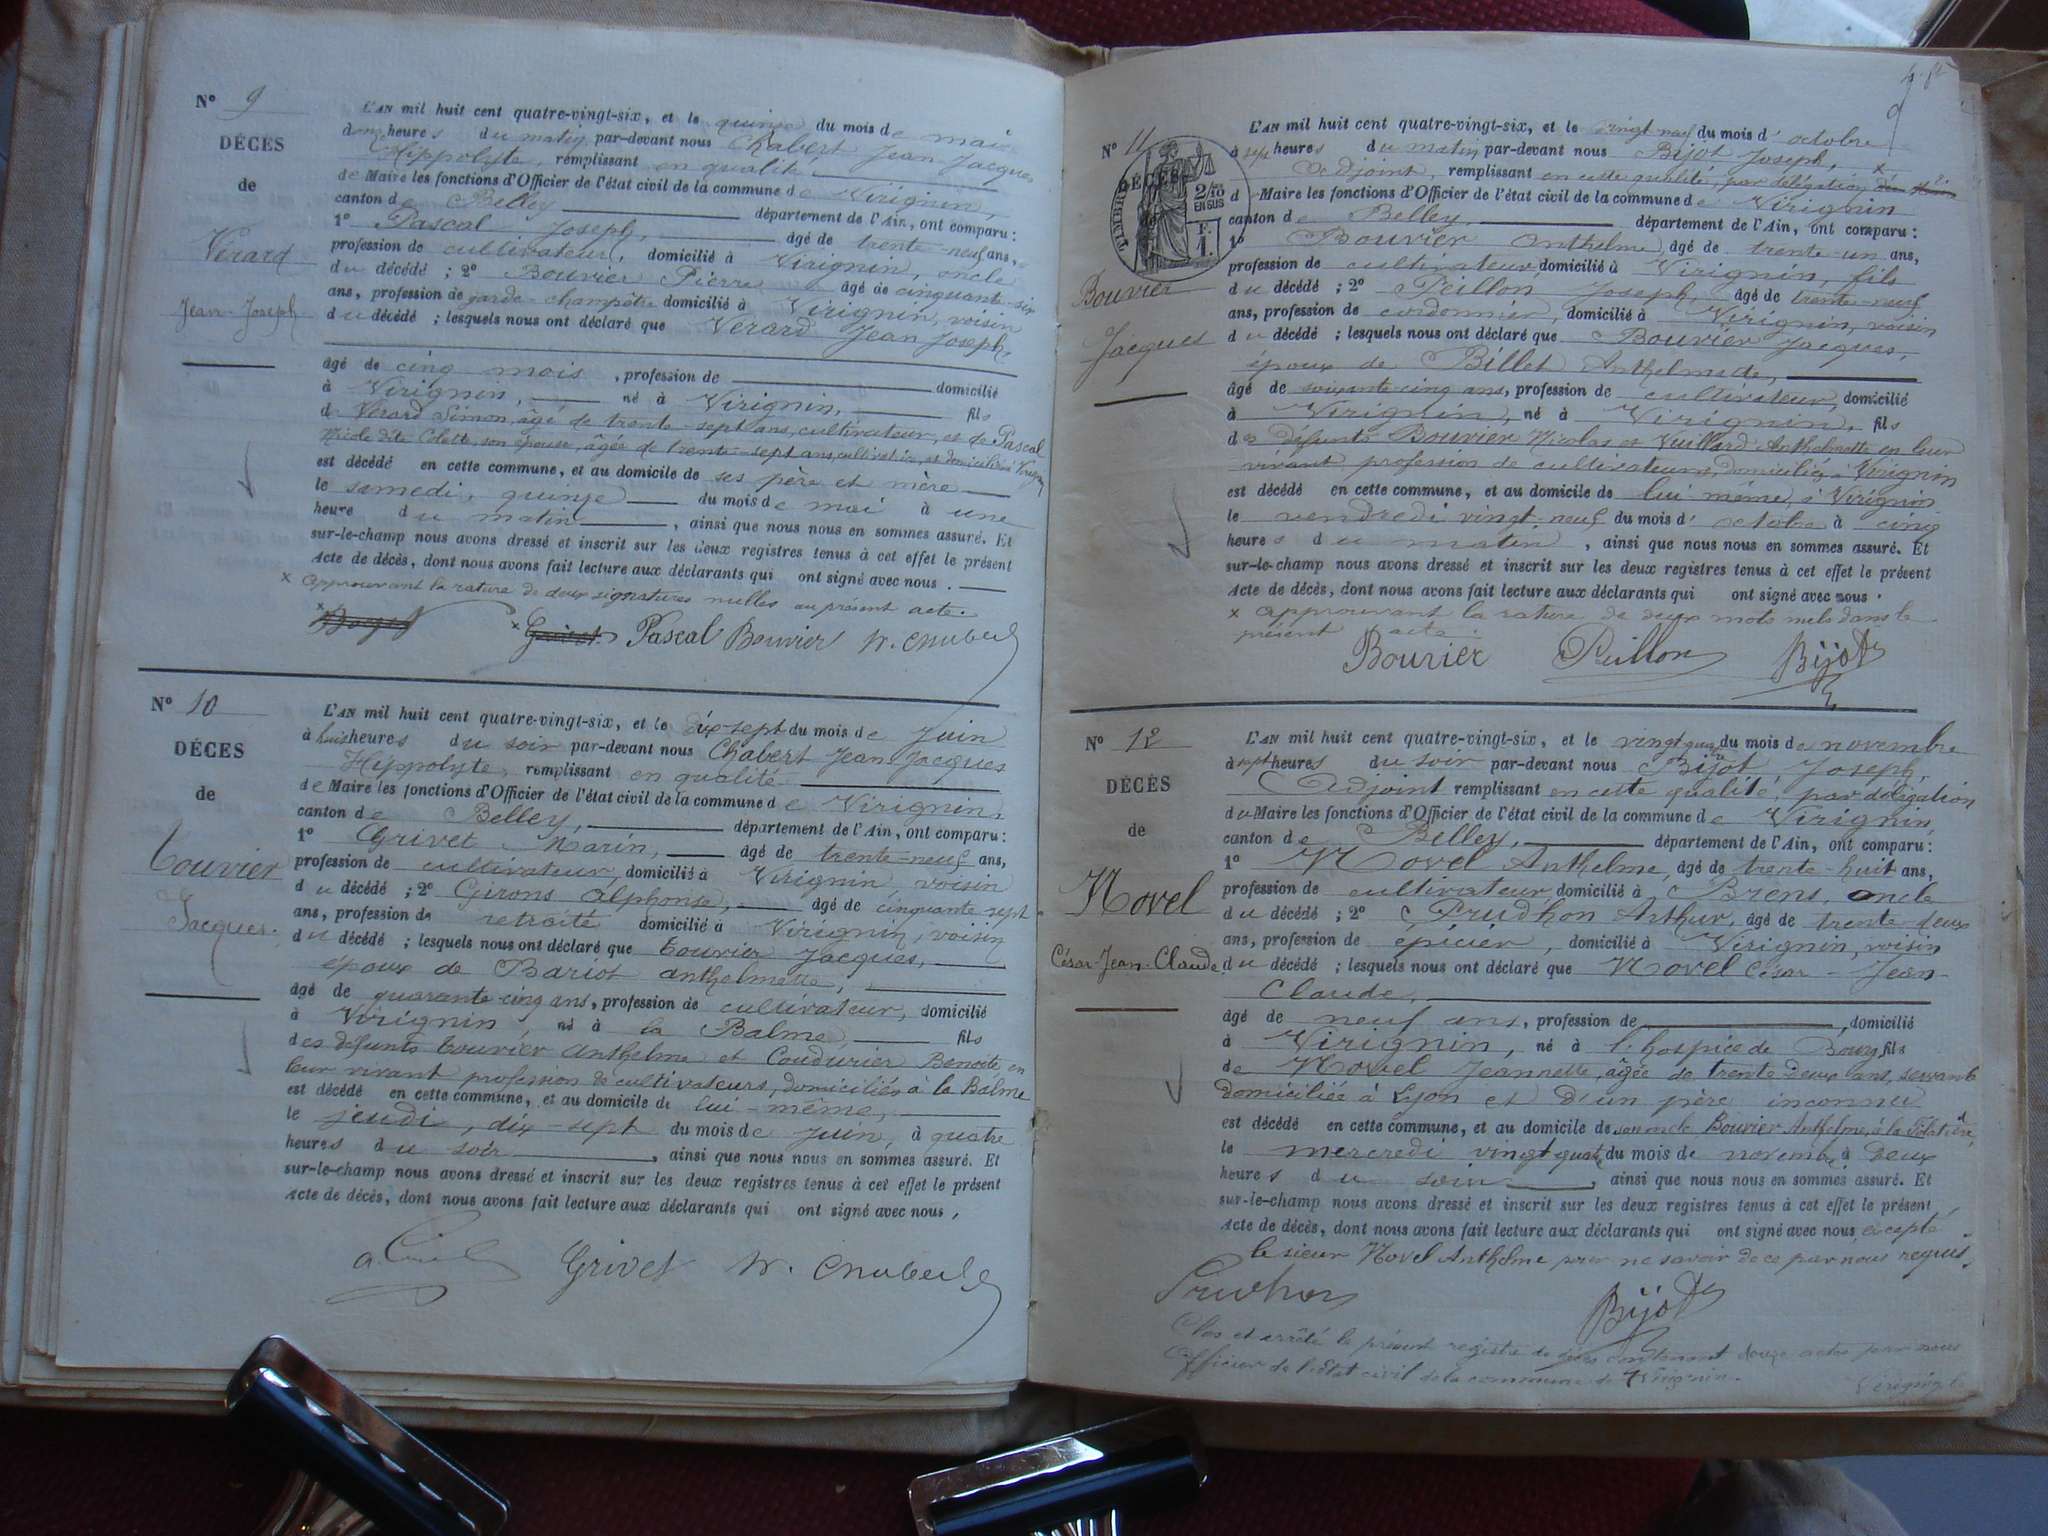 N° 9
DÉCÈS
de
Verard
Jean-Joseph
L'AN mil huit cent quatre-vingt-six, et le quinze du mois de mai
à onze heures du matin par-devant nous Chabert Jean Jacques
Hippolyte, remplissant en qualité
de Maire les fonctions d'Officier de l'état civil de la commune de Virignin,
canton de Belley département de l'Ain, ont comparu :
1° Pascal Joseph, âgé de trente-neuf ans,
profession de cultivateur, domicilié à Virignin, oncle
du décédé ; 2° Bouvier Pierre âgé de cinquante-six
ans, profession de garde-champêtre domicilié à Virignin, voisin
du décédé ; lesquels nous ont déclaré que Verard Jean Joseph,
âgé de cinq mois, profession de domicilié
à Virignin, né à Virignin, fils
de Verard Simon, âgé de trente-sept ans, cultivateur, et de Pascal
Nicole dite Colette, son épouse, âgée de trente-sept ans, cultivatrice, et domiciliés à Virignin
est décédé en cette commune, et au domicile de ses père et mère
le samedi, quinze du mois de mai à une
heure du matin, ainsi que nous nous en sommes assuré. Et
sur-le-champ nous avons dressé et inscrit sur les deux registres tenus à cet effet le présent
Acte de décès, dont nous avons fait lecture aux déclarants qui ont signé avec nous.
x approuvant la rature de deux signatures nulles au présent acte.
x x Grivet Pascal Bouvier H. Chabert
N° 10
DÉCÈS
de
Touvier
Jacques.
L'AN mil huit cent quatre-vingt-six, et le dix-sept du mois de Juin
à huit heures du soir par-devant nous Chabert Jean Jacques
Hippolyte, remplissant en qualité
de Maire les fonctions d'Officier de l'état civil de la commune de Virignin,
canton de Belley, département de l'Ain, ont comparu :
1° Grivet Marin, âgé de trente-neuf ans,
profession de cultivateur, domicilié à Virignin, voisin
du décédé ; 2° Girons Alphonse, âgé de cinquante-sept
ans, profession de retraité domicilié à Virignin, voisin
du décédé ; lesquels nous ont déclaré que Touvier Jacques,
époux de Bariot anthelmette,
âgé de quarante-cinq ans, profession de cultivateur, domicilié
à Virignin, né à la Balme, fils
des défunts Touvier Anthelme et Coudurier Benoite en
leur vivant profession de cultivateurs, domiciliés à la Balme
est décédé en cette commune, et au domicile de lui-même,
le jeudi, dix-sept du mois de juin, à quatre
heures du soir, ainsi que nous nous en sommes assuré. Et
sur-le-champ nous avons dressé et inscrit sur les deux registres tenus à cet effet le présent
Acte de décès, dont nous avons fait lecture aux déclarants qui ont signé avec nous,
Grivet H. Chabert
N° 11
DÉCÈS
TIMBRE
2/10
EN SUS
F.
1.
Bouvier
Jacques
L'AN mil huit cent quatre-vingt-six, et le vingt neuf du mois d'octobre
à sept heures du matin par-devant nous Bijot Joseph,
Adjoint, remplissant en cette qualité, par délégation x
du Maire les fonctions d'Officier de l'état civil de la commune de Virignin
canton de Belley, département de l'Ain, ont comparu :
1° Bouvier Anthelme, âgé de trente-un ans,
profession de cultivateur domicilié à Virignin, fils
du décédé ; 2° Peillon Joseph, âgé de trente-neuf
ans, profession de cordonnier, domicilié à Virignin, voisin
du décédé ; lesquels nous ont déclaré que Bouvier Jacques,
époux de Billet Anthelmede,
âgé de soixante cinq ans, profession de cultivateur, domicilié
à Virignin, né à Virignin, fils
des défunts Bouvier Nicolas et Vuillard Anthelmette en leur
vivant profession de cultivateurs, domiciliés à Virignin
est décédé en cette commune, et au domicile de lui même, à Virignin
le vendredi vingt-neuf du mois d'octobre à cinq
heures du matin, ainsi que nous nous en sommes assuré. Et
sur-le-champ nous avons dressé et inscrit sur les deux registres tenus à cet effet le présent
Acte de décès, dont nous avons fait lecture aux déclarants qui ont signé avec nous.
x approuvant la rature de deux mots nuls dans le
présent acte.
Bouvier Peillon Bijot
N° 12
DÉCÈS
de
Novel
César-Jean-Claude
L'AN mil huit cent quatre-vingt-six, et le vingt quatre du mois de novembre
à sept heures du soir par-devant nous Bijot, Joseph,
Adjoint remplissant en cette qualité, par délégation
du Maire les fonctions d'Officier de l'état civil de la commune de Virignin
canton de Belley, département de l'Ain, ont comparu :
1° Novel Anthelme, âgé de trente-huit ans,
profession de cultivateur, domicilié à Brens, oncle
du décédé ; 2° Prudhon Arthur, âgé de trente-deux
ans, profession de épicier, domicilié à Virignin, voisin
du décédé ; lesquels nous ont déclaré que Novel César-Jean-
Claude,
âgé de neuf ans, profession de, domicilié
à Virignin, né à l'hospice de Bourg fils
de Novel Jeannette, âgée de trente deux ans, servante
domiciliée à Lyon et d'un père inconnu
est décédé en cette commune, et au domicile de son oncle Bouvier Anthelme, à la
le mercredi vingt quatre du mois de novembre à deux
heures du soir, ainsi que nous nous en sommes assuré. Et
sur-le-champ nous avons dressé et inscrit sur les deux registres tenus à cet effet le présent
Acte de décès, dont nous avons fait lecture aux déclarants qui ont signé avec nous excepté
le sieur Novel Anthelme pour ne savoir de ce par nous requis.
Prudhon Bijot
Clos et arrêté le présent registre de décès contenant douze actes par nous
Officier de l'état civil de la commune de Virignin.
Virignin le